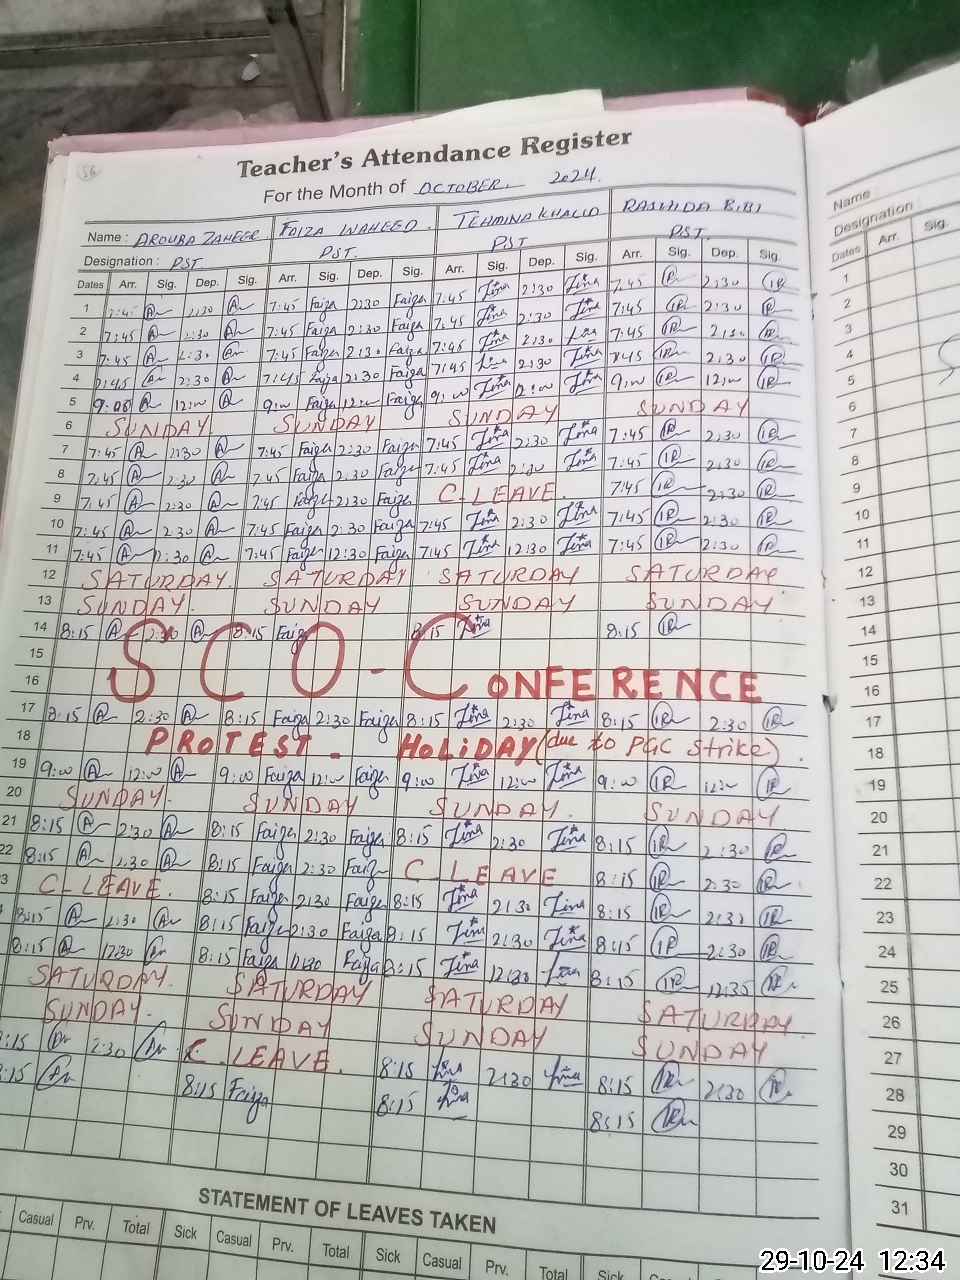 56
Teacher's Attendance Register
For the Month of OCTOBER, 2024.
Name : AROUBA ZAHEER FAIZA WAHEED. TEHMINA KHALID RASHIDA BIBI
Designation : PST. PST. PST PST.
Dates Arr. Sig. Dep. Sig. Arr. Sig. Dep. Sig. Arr. Sig. Dep. Sig. Arr. Sig. Dep. Sig.
1 2:30 7:45 Faiza 2:30 Faiza 7:45 Tina 2:30 Tina 7:45 R 2:30 R
2 7:45 A 2:30 A 7:45 Faiza 2:30 Faiza 7:45 Tina 2:30 Tina 7:45 R 2:30 R
3 7:45 A 2:30 A 7:45 Faiza 2:30 Faiza 7:45 Tina 2:30 Tina 7:45 R 2:30 R
4 7:45 A 2:30 A 7:45 Faiza 2:30 Faiza 7:45 Tina 2:30 Tina 7:45 R 2:30 R
5 9:00 A 12:00 A 9:00 Faiza 12:00 Faiza 9:00 Tina 12:00 Tina 9:00 R 12:00 R
6 SUNDAY SUNDAY SUNDAY SUNDAY
7 7:45 A 2:30 A 7:45 Faiza 2:30 Faiza 7:45 Tina 2:30 Tina 7:45 R 2:30 R
8 7:45 A 2:30 A 7:45 Faiza 2:30 Faiza 7:45 Tina 2:30 Tina 7:45 R 2:30 R
9 7:45 A 2:30 A 7:45 Faiza 2:30 Faiza C-LEAVE. 7:45 R 2:30 R
10 7:45 A 2:30 A 7:45 Faiza 2:30 Faiza 7:45 Tina 2:30 Tina 7:45 R 2:30 R
11 7:45 A 12:30 A 7:45 Faiza 12:30 Faiza 7:45 Tina 12:30 Tina 7:45 R 2:30 R
12 SATURDAY SATURDAY SATURDAY SATURDAY
13 SUNDAY. SUNDAY SUNDAY SUNDAY
14 8:15 A 2:30 A 8:15 Faiza 8:15 Tina 8:15 R
15
16 SCO-CONFERENCE
17 8:15 A 2:30 A 8:15 Faiza 2:30 Faiza 8:15 Tina 2:30 Tina 8:15 R 2:30 R
18 PROTEST - HOLIDAY (due to PGC strike).
19 9:00 A 12:00 A 9:00 Faiza 12:00 Faiza 9:00 Tina 12:00 Tina 9:00 R 12:00 R
20 SUNDAY. SUNDAY SUNDAY. SUNDAY
21 8:15 A 2:30 A 8:15 Faiza 2:30 Faiza 8:15 Tina 2:30 Tina 8:15 R 2:30 R
22 8:15 A 2:30 A 8:15 Faiza 2:30 Faiza C LEAVE 8:15 R 2:30 R
3 C-LEAVE. 8:15 Faiza 2:30 Faiza 8:15 Tina 2:30 Tina 8:15 R 2:30 R
8:15 A 2:30 A 8:15 Faiza 2:30 Faiza 8:15 Tina 2:30 Tina 8:15 R 2:30 R
8:15 A 12:30 A 8:15 Faiza 12:30 Faiza 8:15 Tina 12:30 Tina 8:15 R 12:35 R
SATURDAY. SATURDAY SATURDAY SATURDAY.
SUNDAY. SUNDAY SUNDAY SUNDAY
:15 A 2:30 A C. LEAVE. 8:15 Tina 2:30 Tina 8:15 R 2:30 R
:15 A 8:15 Faiza 8:15 Tina 8:15 R
STATEMENT OF LEAVES TAKEN
Casual Prv. Total Sick Casual Prv. Total Sick Casual Prv. Total Sick
Name :
Designation :
Dates Arr. Sig.
1
2
3
4
5
6
7
8
9
10
11
12
13
14
15
16
17
18
19
20
21
22
23
24
25
26
27
28
29
30
31
29-10-24 12:34